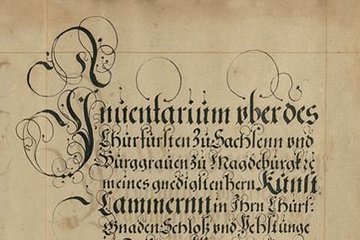 Inuentarium vber des
Churfürsten zu Sachsenn vnd
Burggrauen zu Magdeburgk ꝛc
meines gnedigsten hern Kunst
Cammernn in Ihrn Churf:
Gnaden Schloß vnd Vehstunge